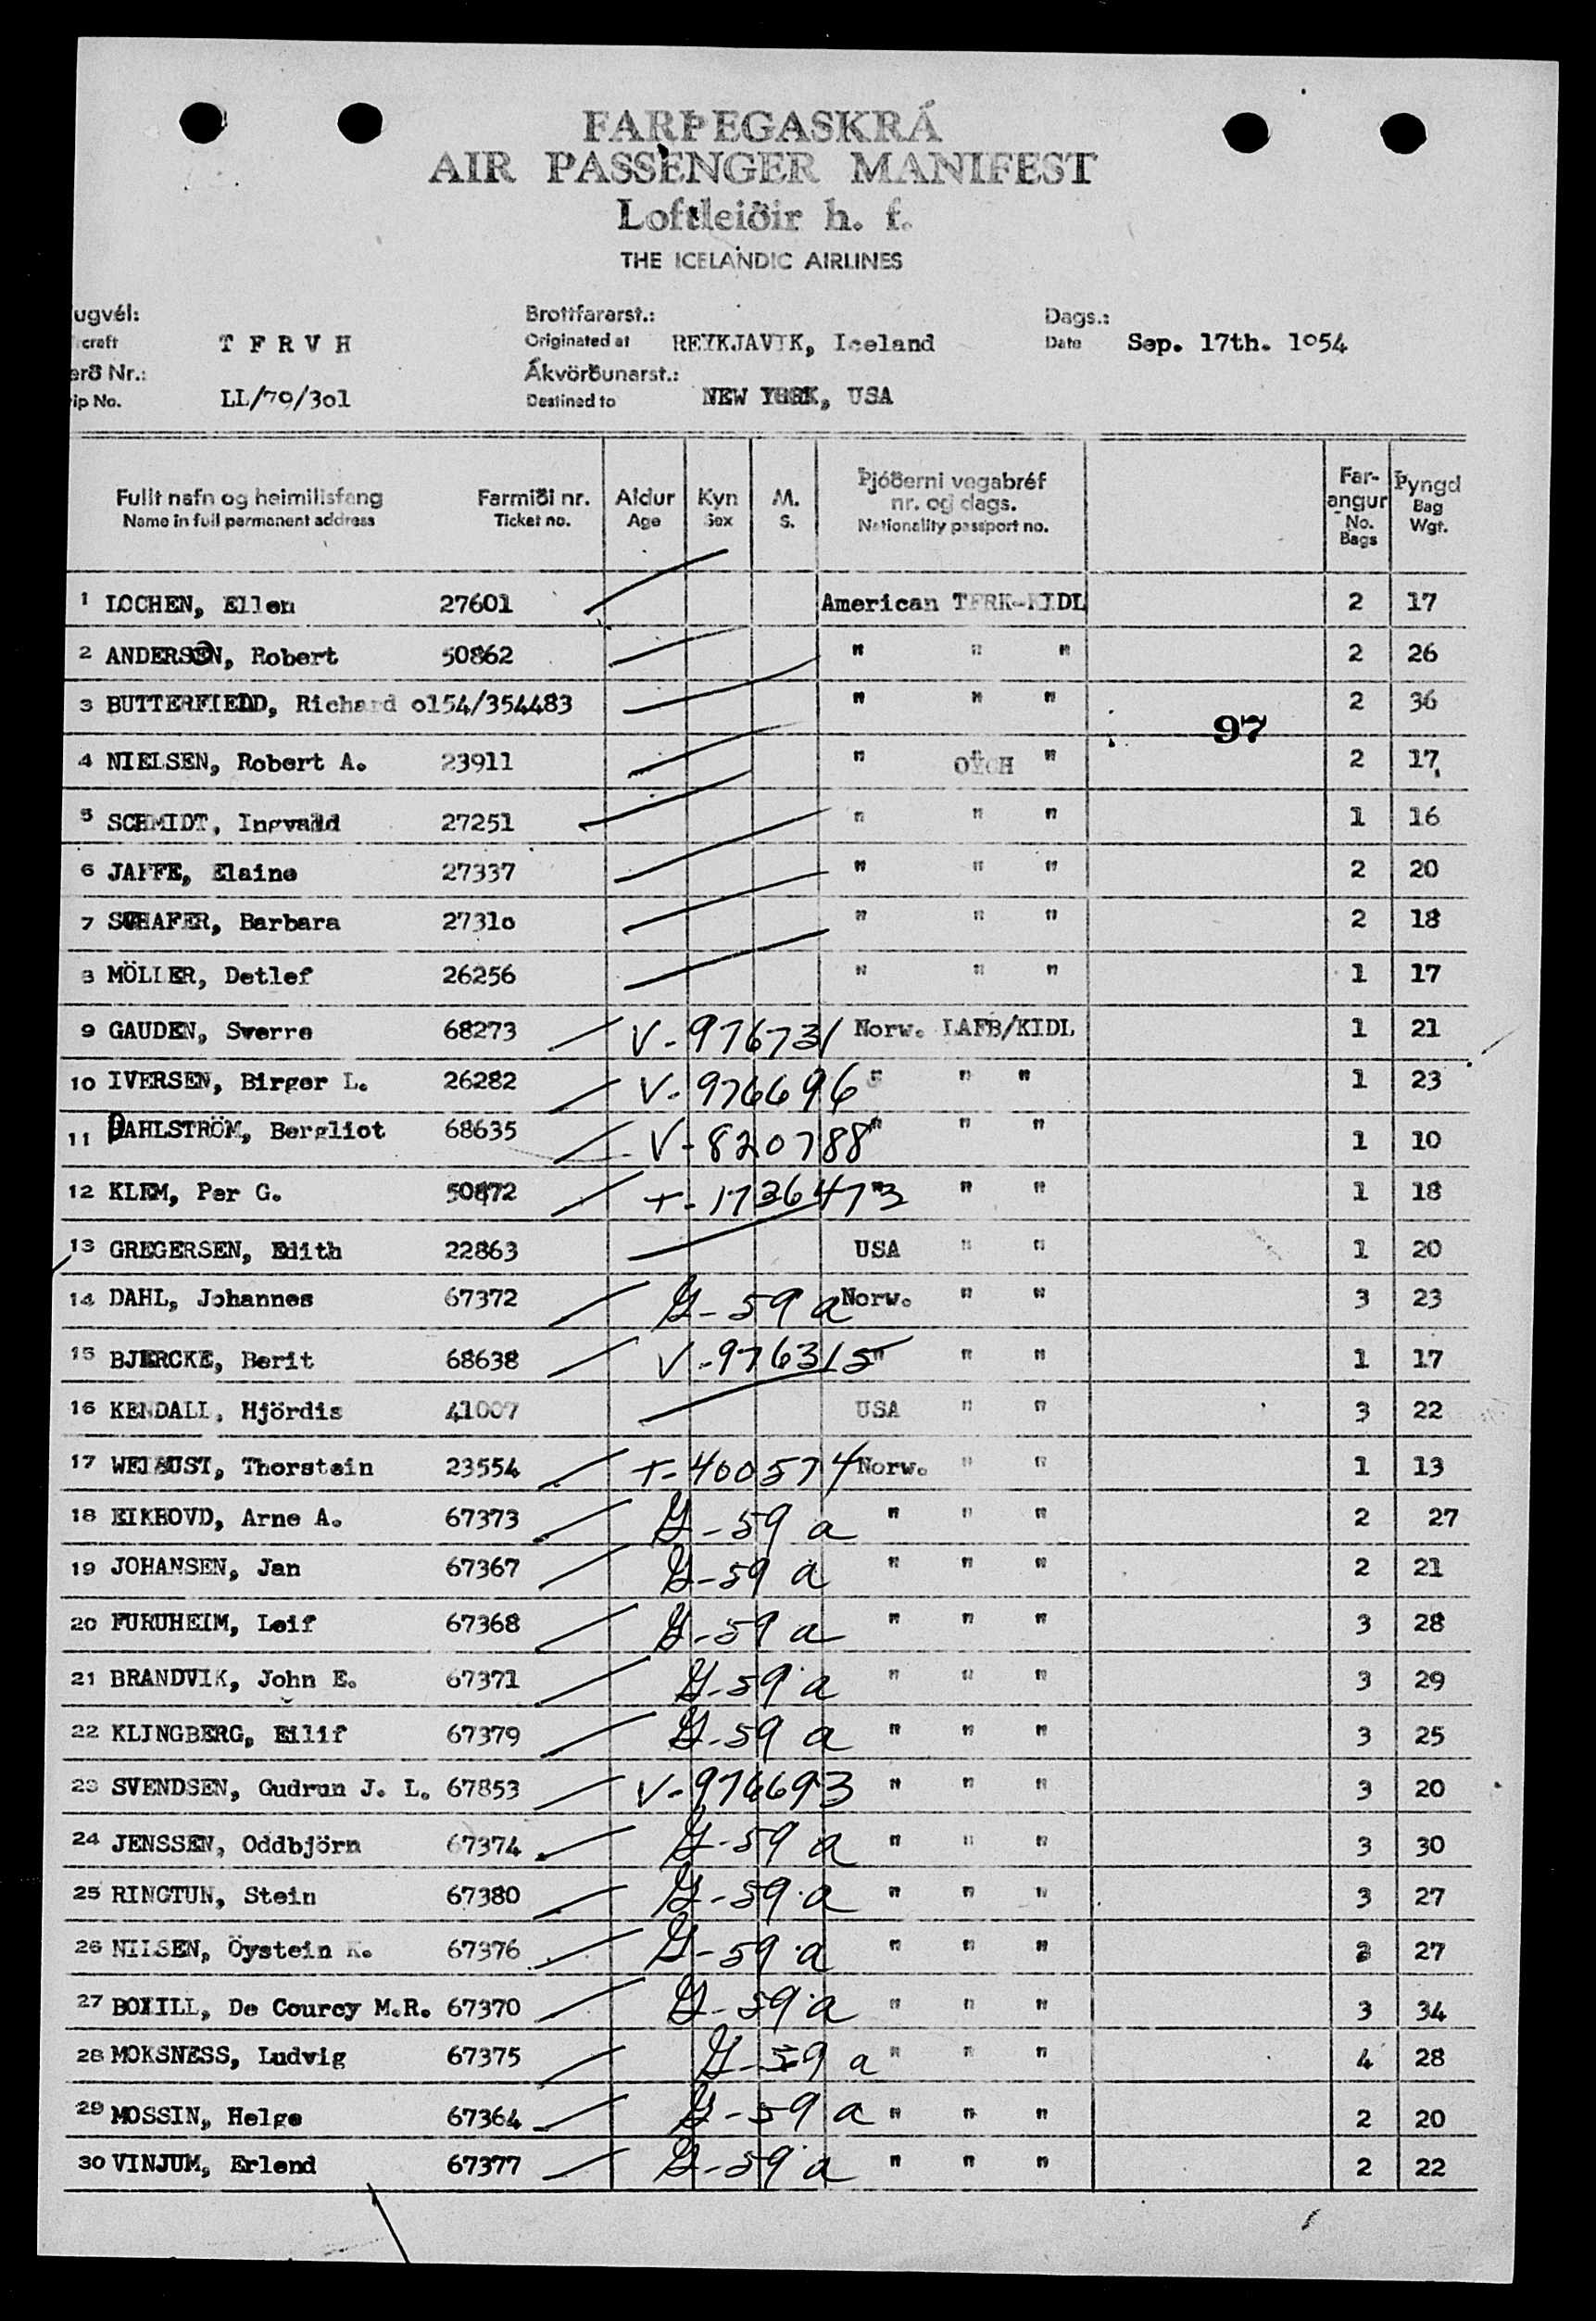 FARÞEGASKRÁ
AIR PASSENGER MANIFEST
Loftleiðir h. f.
THE ICELANDIC AIRLINES
ugvél: Brottfararst.: Dags.:
craft T F R V H Originated at REYKJAVIK, Iceland Date Sep. 17th. 1o54
erð Nr.: Ákvörðunarst.:
ip No. LL/79/3o1 Destined to NEW YORK, USA
Fullt nafn og heimilisfang Farmiði nr. Aldur Kyn M. Þjóðerni vegabréf nr. og dags. Far-angur Þyngd
Name in full permanent address Ticket no. Age Sex S. Nationality passport no. No. Bags Bag Wgt.
1 LOCHEN, Ellen 27601 American TFRK-KIDL 2 17
2 ANDERSEN, Robert 50862 " " " 2 26
3 BUTTERFIEDD, Richard o154/354483 " " " 2 36
97
4 NIELSEN, Robert A. 23911 " OYCH " 2 17
5 SCHMIDT, Ingvald 27251 " " " 1 16
6 JAFFE, Elaine 27337 " " " 2 20
7 SCHAFER, Barbara 2731o " " " 2 18
8 MÖLLER, Detlef 26256 " " " 1 17
9 GAUDEN, Sverre 68273 V-976731 Norw. LAFB/KIDL 1 21
10 IVERSEN, Birger L. 26282 V-976696 " " " 1 23
11 DAHLSTRÖM, Bergliot 68635 V-820788 " " " 1 10
12 KLEM, Per G. 50872 T-1736473 " " " 1 18
13 GREGERSEN, Edith 22863 USA " " 1 20
14 DAHL, Johannes 67372 G-59 a Norw. " " 3 23
15 BJERCKE, Berit 68638 V-976315 " " " 1 17
16 KENDALL, Hjördis 41007 USA " " 3 22
17 WEIBUST, Thorstein 23554 T-400574 Norw. " " 1 13
18 EIKHOVD, Arne A. 67373 G-59 a " " " 2 27
19 JOHANSEN, Jan 67367 G-59 a " " " 2 21
20 FURUHEIM, Leif 67368 G-59 a " " " 3 28
21 BRANDVIK, John E. 67371 G-59 a " " " 3 29
22 KLINGBERG, Eilif 67379 G-59 a " " " 3 25
23 SVENDSEN, Gudrun J. L. 67853 V-976693 " " " 3 20
24 JENSSEN, Oddbjörn 67374 G-59 a " " " 3 30
25 RINGTUN, Stein 67380 G-59 a " " " 3 27
26 NILSEN, Öystein K. 67376 G-59 a " " " 3 27
27 BOXILL, De Courcy M.R. 67370 G-59 a " " " 3 34
28 MOKSNESS, Ludvig 67375 G-59 a " " " 4 28
29 MOSSIN, Helge 67364 G-59 a " " " 2 20
30 VINJUM, Erlend 67377 G-59 a " " " 2 22